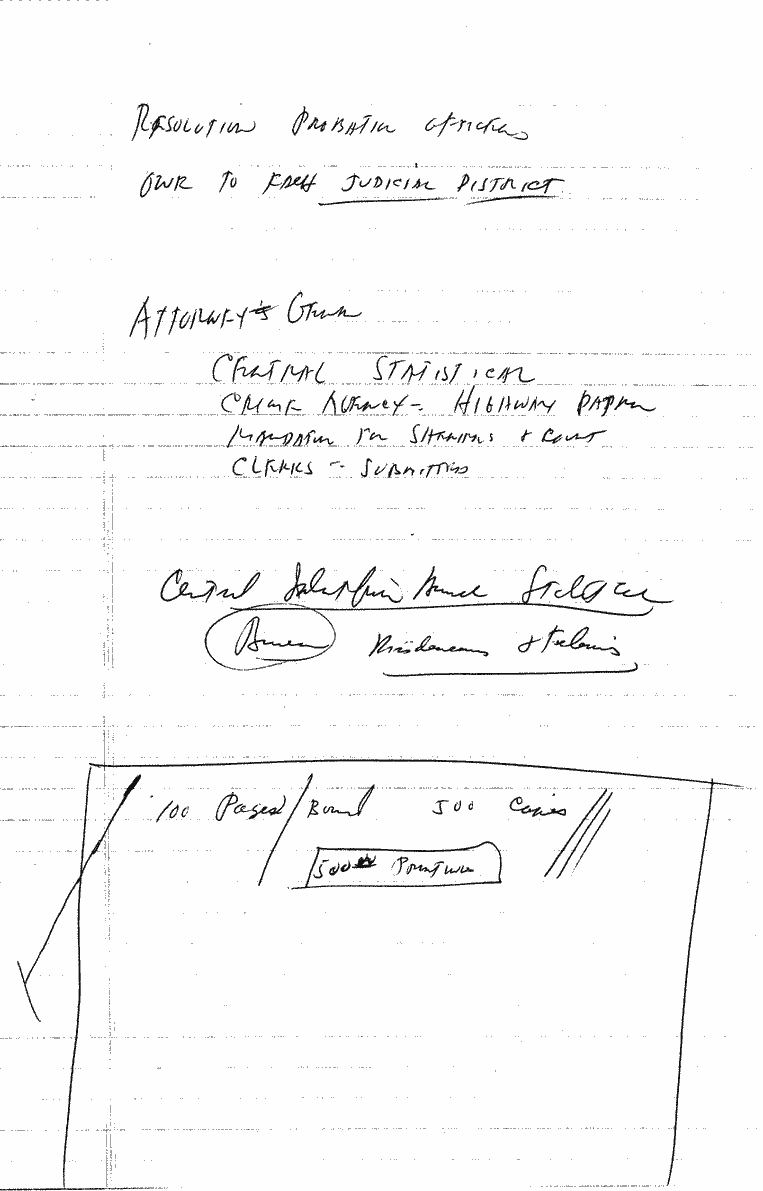 RESOLUTION PROBATION OFFICERS
TO EACH JUDICIAL DISTRICT
ATTORNEY'S
CENTRAL STATISTICAL
CRIME AGENCY - HIGHWAY PATROL
MANDATORY FOR SHERIFFS & COURT
CLERKS - SUBMITTED
Central
Bureau Misdemeanors & Felonies
100 Pages/Bound 500 Copies
500